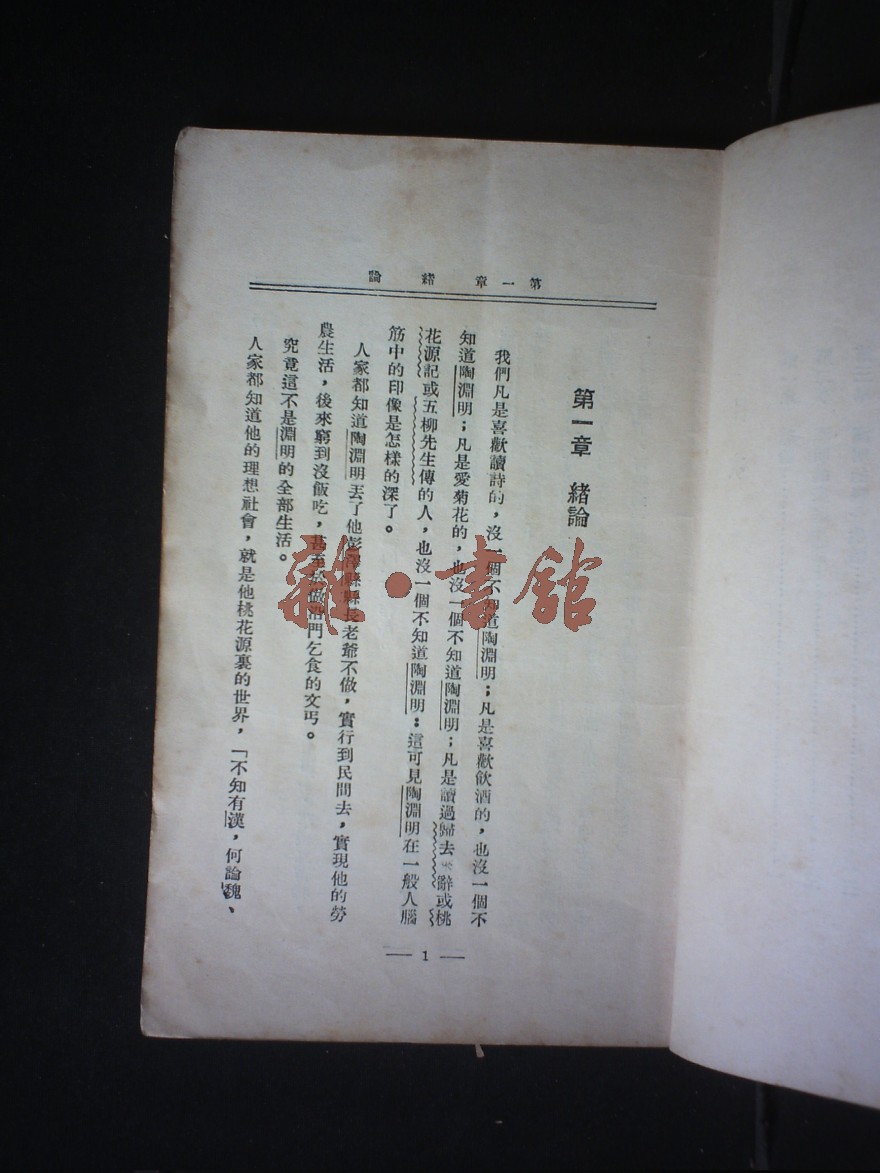 第一章　緒論
第一章　緒論
我們凡是喜歡讀詩的，沒一個不知道陶淵明；凡是喜歡飲酒的，也沒一個不
知道陶淵明；凡是愛菊花的，也沒一個不知道陶淵明；凡是讀過歸去來辭或桃
花源記或五柳先生傳的人，也沒一個不知道陶淵明：這可見陶淵明在一般人腦
筋中的印像是怎樣的深了。
人家都知道陶淵明丟了他彭澤縣縣長老爺不做，實行到民間去，實現他的勞
農生活，後來窮到沒飯吃，甚至於做沿門乞食的文丐。
究竟這不是淵明的全部生活。
人家都知道他的理想社會，就是他桃花源裏的世界，「不知有漢，何論魏、
— 1 —
雜·書館